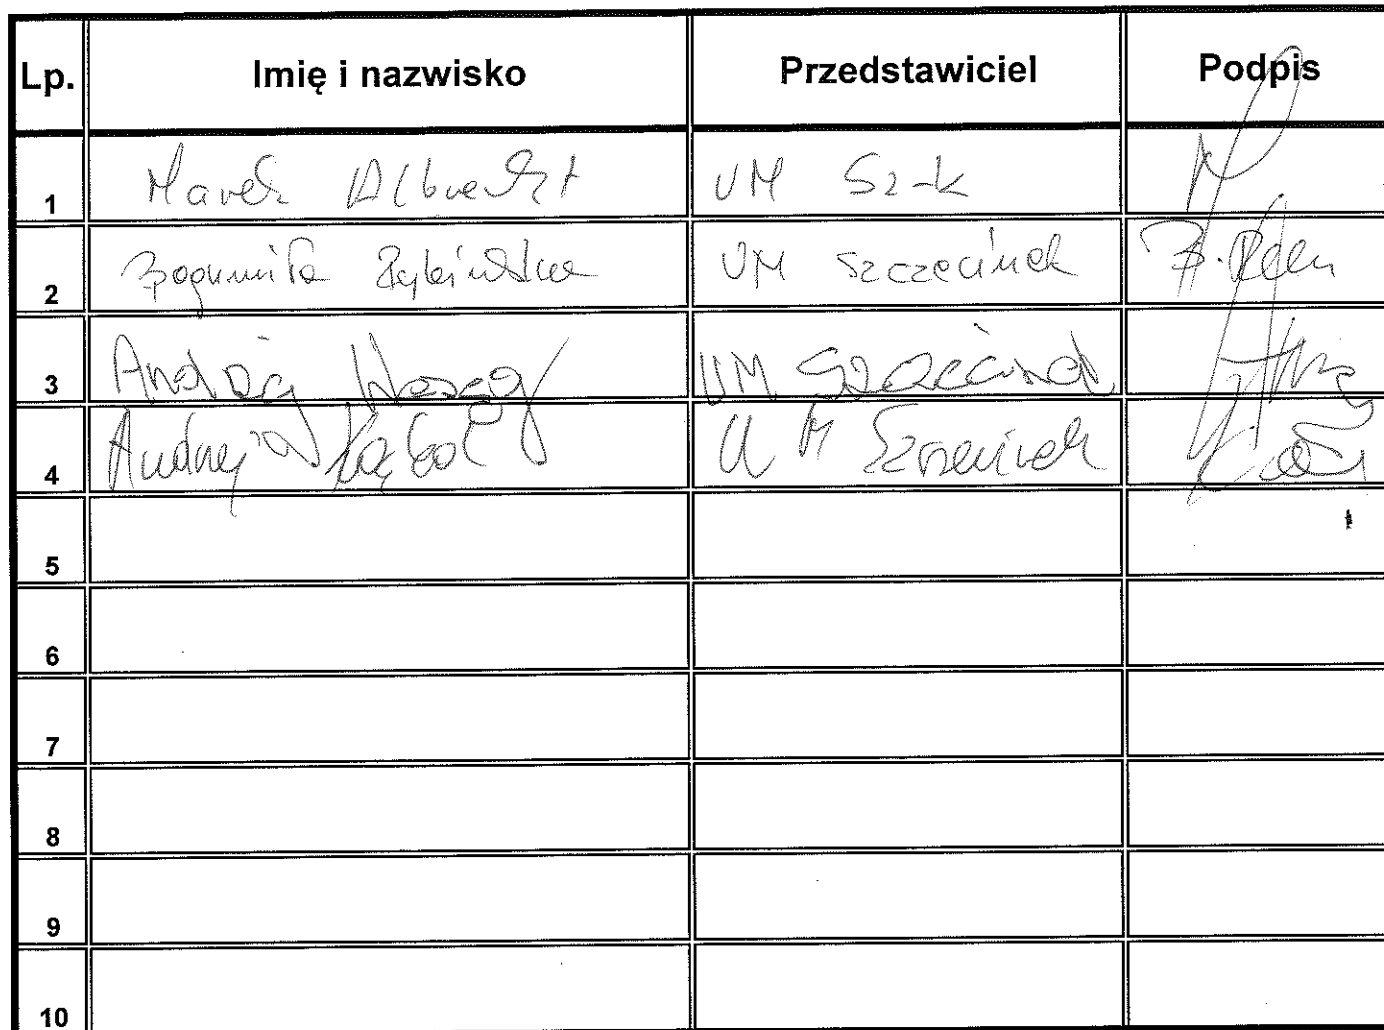 Lp. Imię i nazwisko Przedstawiciel Podpis
1 Marek Albrecht UM Sz-k
2 Bogumiła UM Szczecinek
3 Andrzej UM Szczecinek
4 Andrzej UM Szczecinek
5
6
7
8
9
10